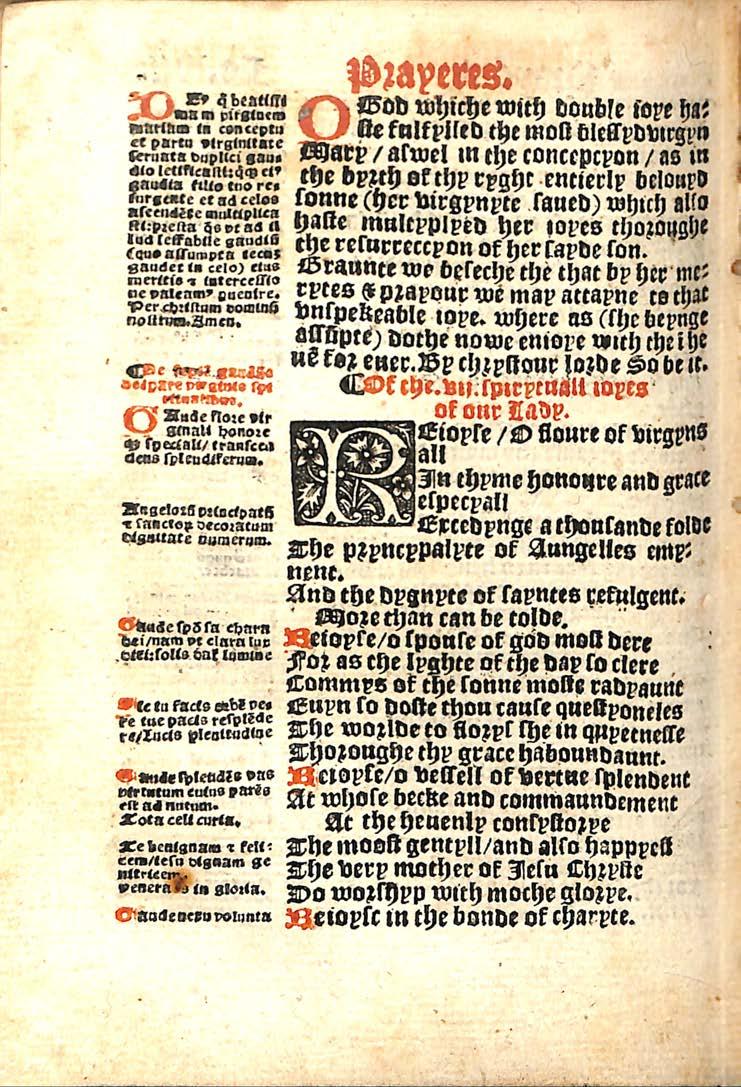 Prayeres.
DEꝰ q̄ beatissi
mam virginem
mariam in conceptu
et partu virginitate
seruata duplici gau
dio letificasti: q̄q̄ eiꝰ
gaudia filio tuo re
surgente et ad celos
ascendēte multiplica
sti: presta q̄s vt ad il
lud ieffabile gaudiū
(quo assumpta tecū
gaudet in celo) eius
meritis ⁊ intercessio
ne valeamꝰ puenire.
Per christum dominū
nostrum. Amen.
¶De septē gaudiis
deipare virginis spi
ritualibus.
GAude flore vir
ginali honore
q̄ speciali / transcen
dens splendiferum.
Angelorū principatū
⁊ sanctoꝝ decoratum
dignitate numerum.
Gaude spōsa chara
dei / nam vt clara lux
diei: solis dat̄ lumine
Sic tu facis orbē ve
re tue pacis resplēde
re / lucis plenitudine
Gaude splēdēs vas
virtutum cuius parēs
est ad nutum.
Tota celi curia.
Te benignam ⁊ feli:
cem / iesu dignam ge
nitricem.
venerās in gloria.
Gaude nexu volunta
O God whiche with double ioye ha:
ste fulfylled the most blessyd virgyn
Mary / aswel in the concepcyon / as in
the byrth of thy ryght entierly belouyd
sonne (her virgynyte saued) which also
haste multyplyed her ioyes thoroughe
the resurreccyon of her sayde son.
Graunte we beseche the that by her me:
rytes & prayour we may attayne to that
vnspekeable ioye. where as (she beynge
assūpte) dothe nowe enioye with the i he
uē for euer. By chrystour lorde So be it.
¶Of the .vii. spirytuall ioyes
of our Lady.
REioyse / O floure of virgyns
all
In thyme honoure and grace
especyall
Excedynge a thousande folde
The pryncypalyte of Aungelles emy:
nent.
And the dygnyte of sayntes refulgent.
More than can be tolde.
Reioyse / o spouse of god most dere
For as the lyghte of the day so clere
Commys of the sonne moste radyaunt
Euyn so doste thou cause questyoneles
The worlde to florys she in quyetnesse
Thoroughe thy grace haboundaunt.
Reioyse / o vessell of vertue splendent
At whose becke and commaundement
At the heuenly consystorye
The moost gentyll / and also happyest
The very mother of Jesu Chryste
Do worshyp with moche glorye.
Reioyse in the bonde of charyte.